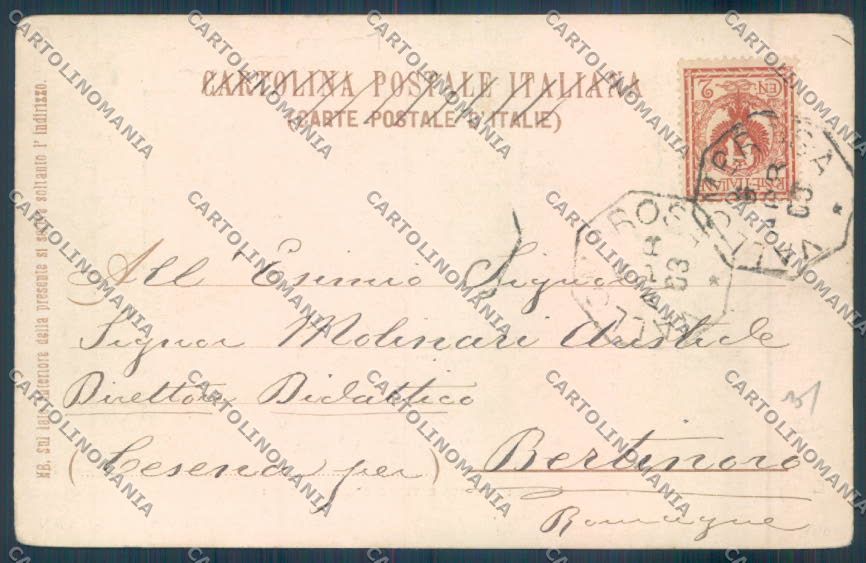 CARTOLINA POSTALE ITALIANA
(CARTE POSTALE D'ITALIE)
NB. Sul lato anteriore della presente si scrive soltanto l'indirizzo.
All' Esimio Signore
Signor Molinari Aristide
Direttore Didattico
(Cesena per) Bertinoro
Romagne
CARTOLINOMANIA